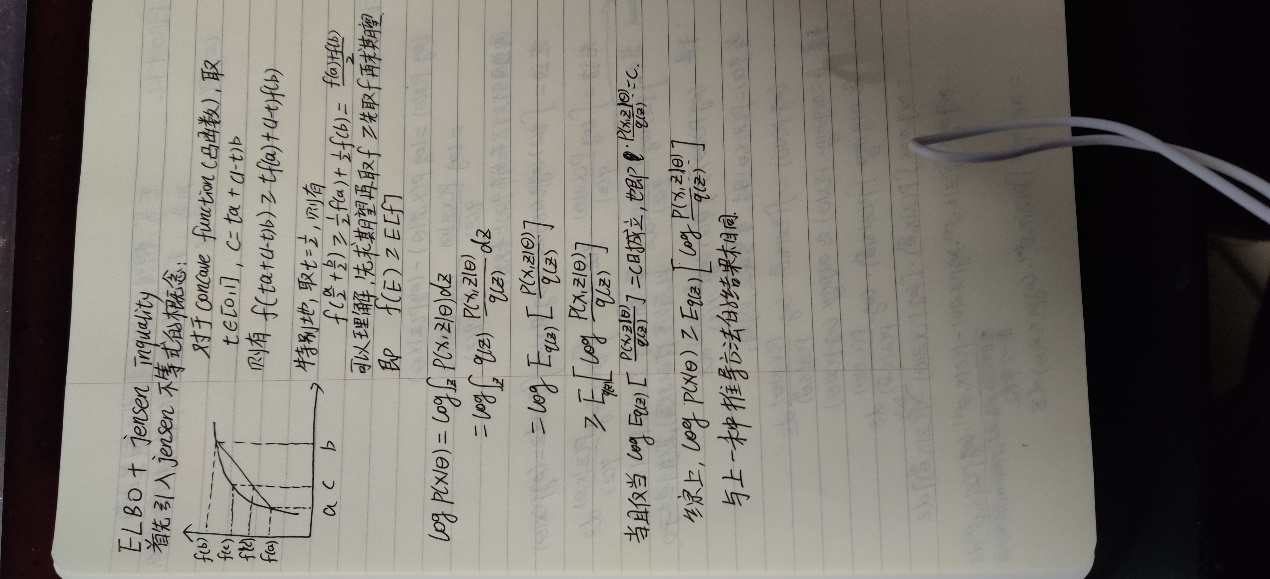 ELBO + jensen inquality
首先引入jensen 不等式的概念:
f(b)
f(c)
f(a)
a c b
对于 concave function (凸函数), 取
t∈[0,1], c = ta + (1-t)b
则有 f(ta+(1-t)b) ≥ tf(a)+(1-t)f(b)
特别地, 取t=1/2, 则有
f(a/2 + b/2) ≥ 1/2 f(a) + 1/2 f(b) = (f(a)+f(b))/2
可以理解, 先求期望再取f ≥ 先取f再求期望
即 f(E) ≥ E[f]
log P(X|θ) = log ∫_z P(x,z|θ) dz
= log ∫_z q(z) P(x,z|θ)/q(z) dz
= log E_q(z) [ P(x,z|θ)/q(z) ]
≥ E_q(z) [ log P(x,z|θ)/q(z) ]
当且仅当 log E_q(z) [ P(x,z|θ)/q(z) ] = C时成立, 也即 P(x,z|θ)/q(z) = C.
综上, log P(X|θ) ≥ E_q(z) [ log P(x,z|θ)/q(z) ]
与上一种推导方法的结果相同.